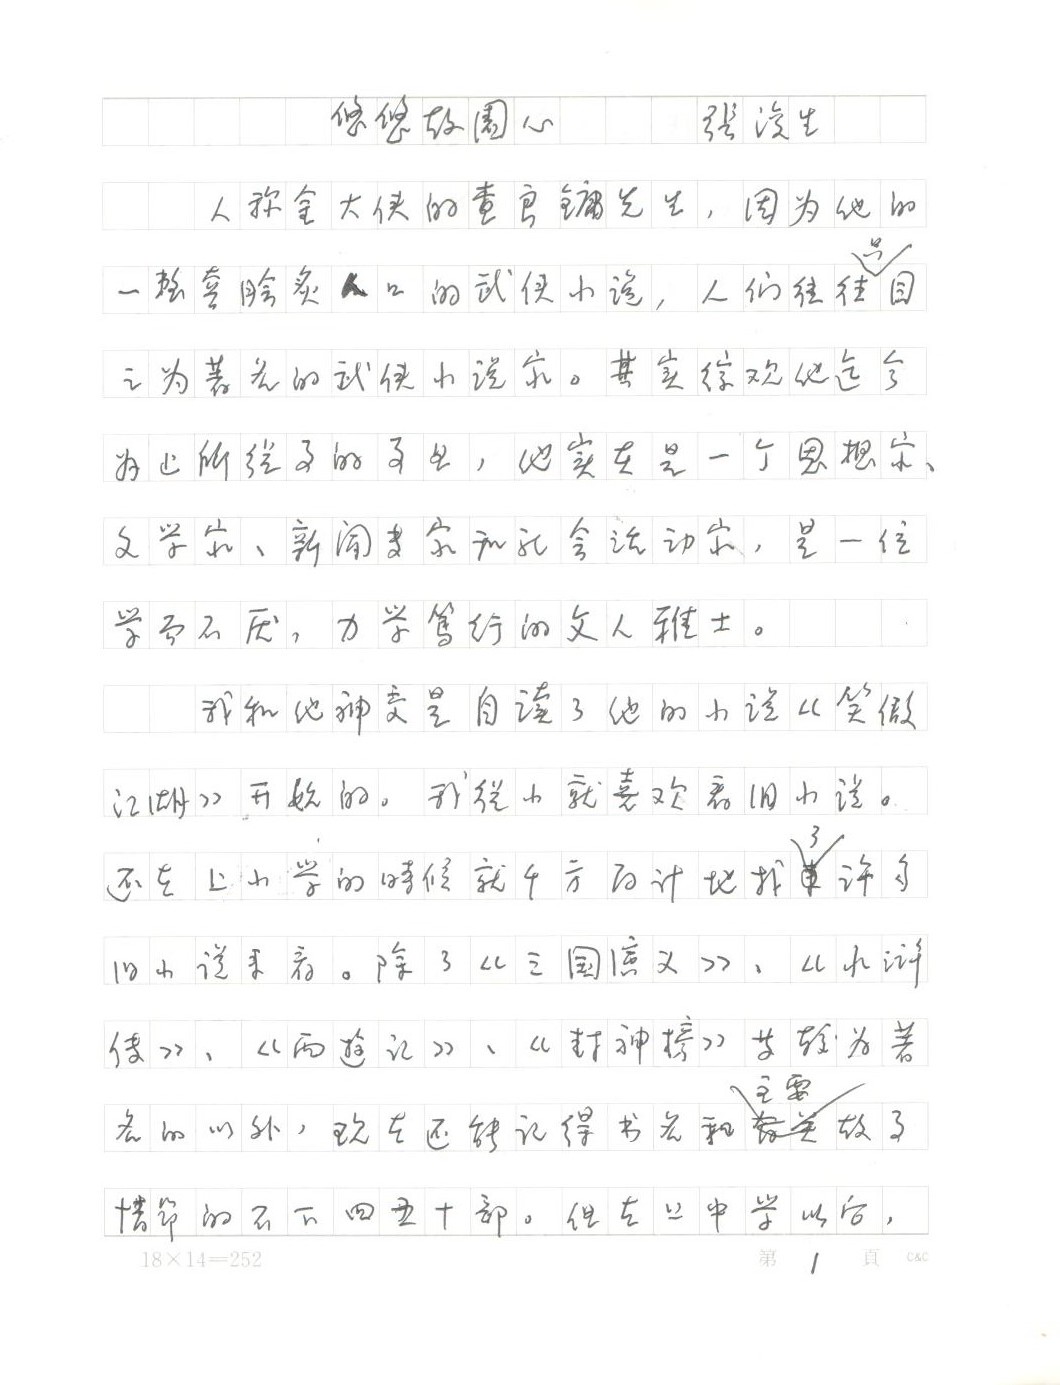 悠悠故園心 張浚生
人称金大侠的查良鏞先生，因为他的
一整套脍炙人口的武侠小说，人们往往只目
之为著名的武侠小说家。其实综观他迄今
为止所從事的事业，他实在是一个思想家、
文学家、新闻专家和社会活动家，是一位
学而不厌，力学篤行的文人雅士。
我和他神交是自读了他的小说《笑傲
江湖》开始的。我從小就喜欢看旧小说。
还在上小学的時候就千方百计地找了许多
旧小说来看。除了《三国演义》、《水浒
传》、《西遊记》、《封神榜》等较为著
名的以外，现在还能记得书名和主要故事
情節的不下四五十部。但在上中学以后，
18×14=252 第 1 頁 C&C